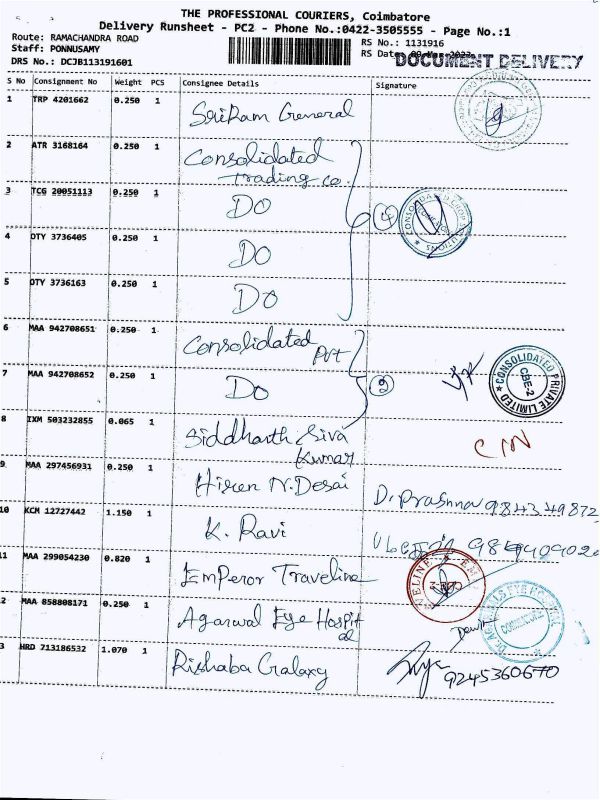 THE PROFESSIONAL COURIERS, Coimbatore
Delivery Runsheet - PC2 - Phone No.:0422-3505555 - Page No.:1
Route: RAMACHANDRA ROAD
RS No.: 1131916
Staff: PONNUSAMY
RS Date:
DOCUMENT DELIVERY
DRS No.: DCJB113191601
S No Consignment No Weight PCS Consignee Details Signature
1 TRP 4201662 0.250 1 SriRam General
2 ATR 3168164 0.250 1 Consolidated
Trading co.
3 TCG 20051113 0.250 1 DO
4
CONSOLIDATED SOLUTIONS
4 OTY 3736405 0.250 1 DO
5 OTY 3736163 0.250 1 DO
6 MAA 942708651 0.250 1 Consolidated
Pvt
CONSOLIDATED PRIVATE LIMITED
CBE-2
7 MAA 942708652 0.250 1 DO
2
8 IXM 503232855 0.065 1 Siddharth Siva
Kumar
9 MAA 297456931 0.250 1 Hiren N. Desai
10 KCM 12727442 1.150 1 K. Ravi
11 MAA 299054230 0.820 1 Emperor Traveline
2 MAA 858808171 0.250 1 Agarwal Eye Hospit
al
3 HRD 713186532 1.070 1 Rishaba Galaxy 9245360670